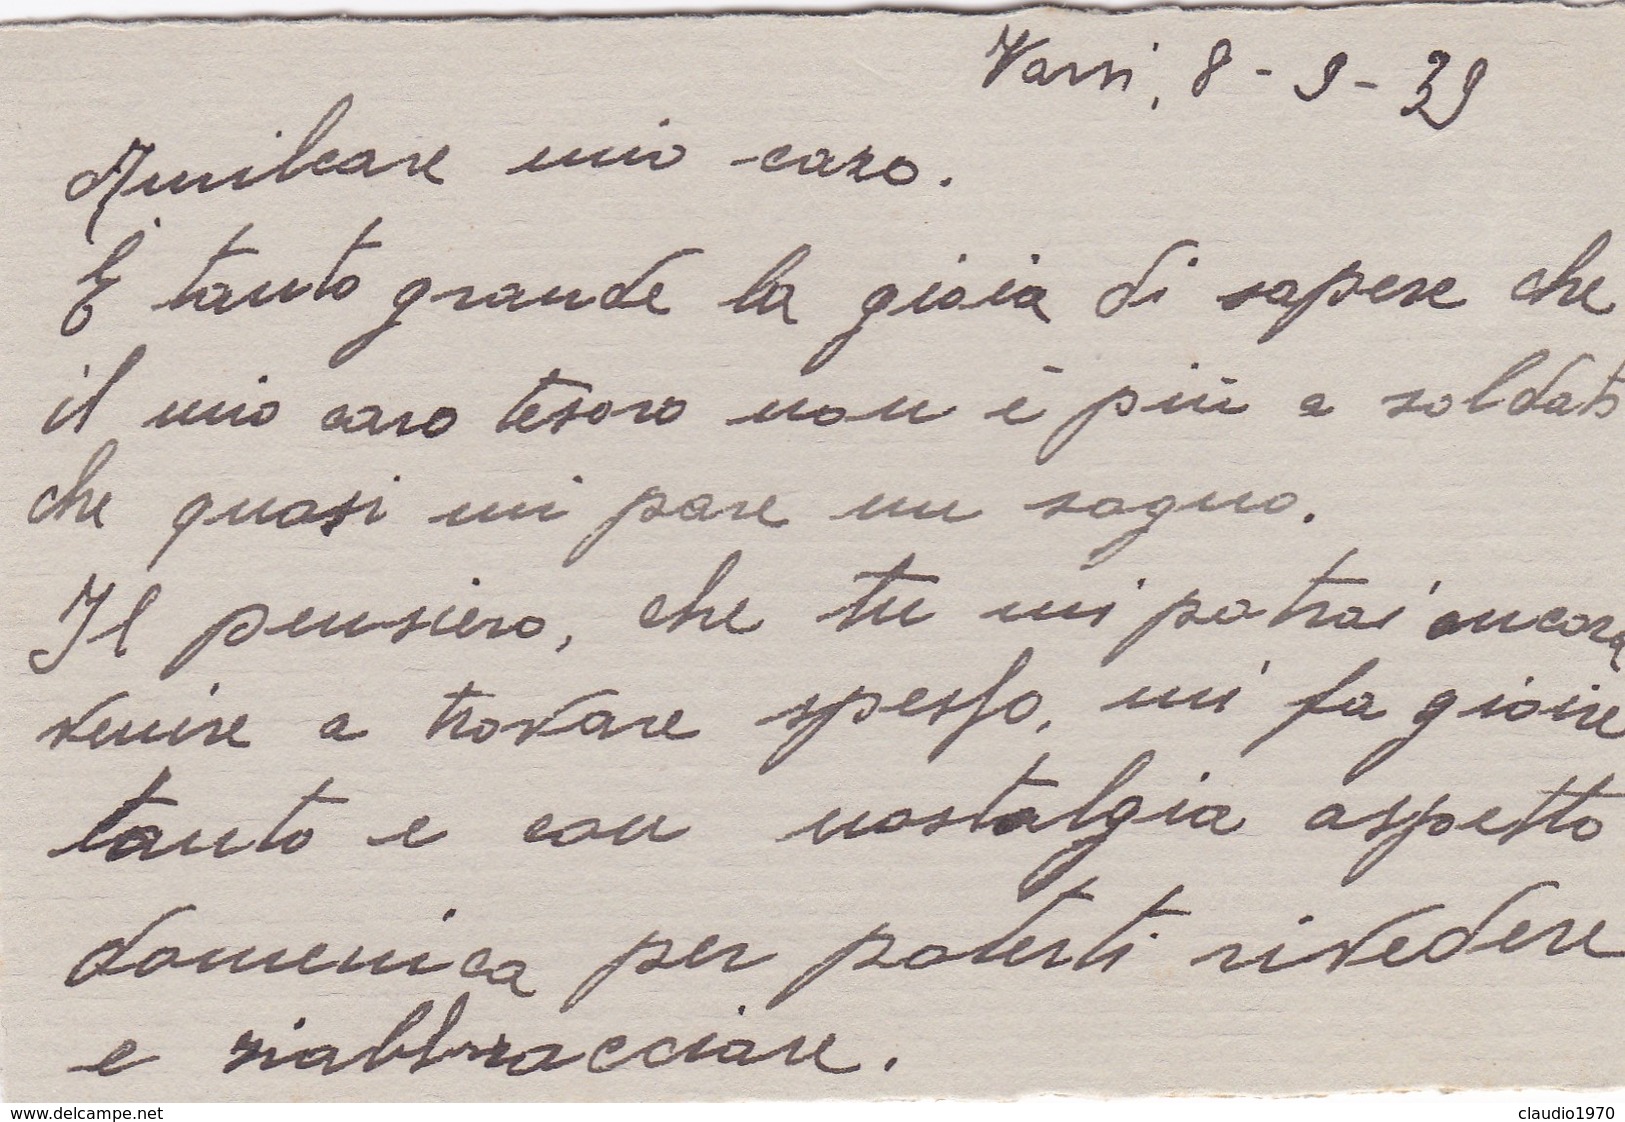 Varsi, 8-9-39
Amilcare mio caro.
È tanto grande la gioia di sapere che
il mio caro tesoro non è più a soldato
che quasi mi pare un sogno.
Il pensiero, che tu mi potrai ancora
venire a trovare spesso, mi fa gioire
tanto e con nostalgia aspetto
domenica per poterti rivedere
e riabbracciare.
www.delcampe.net
claudio1970